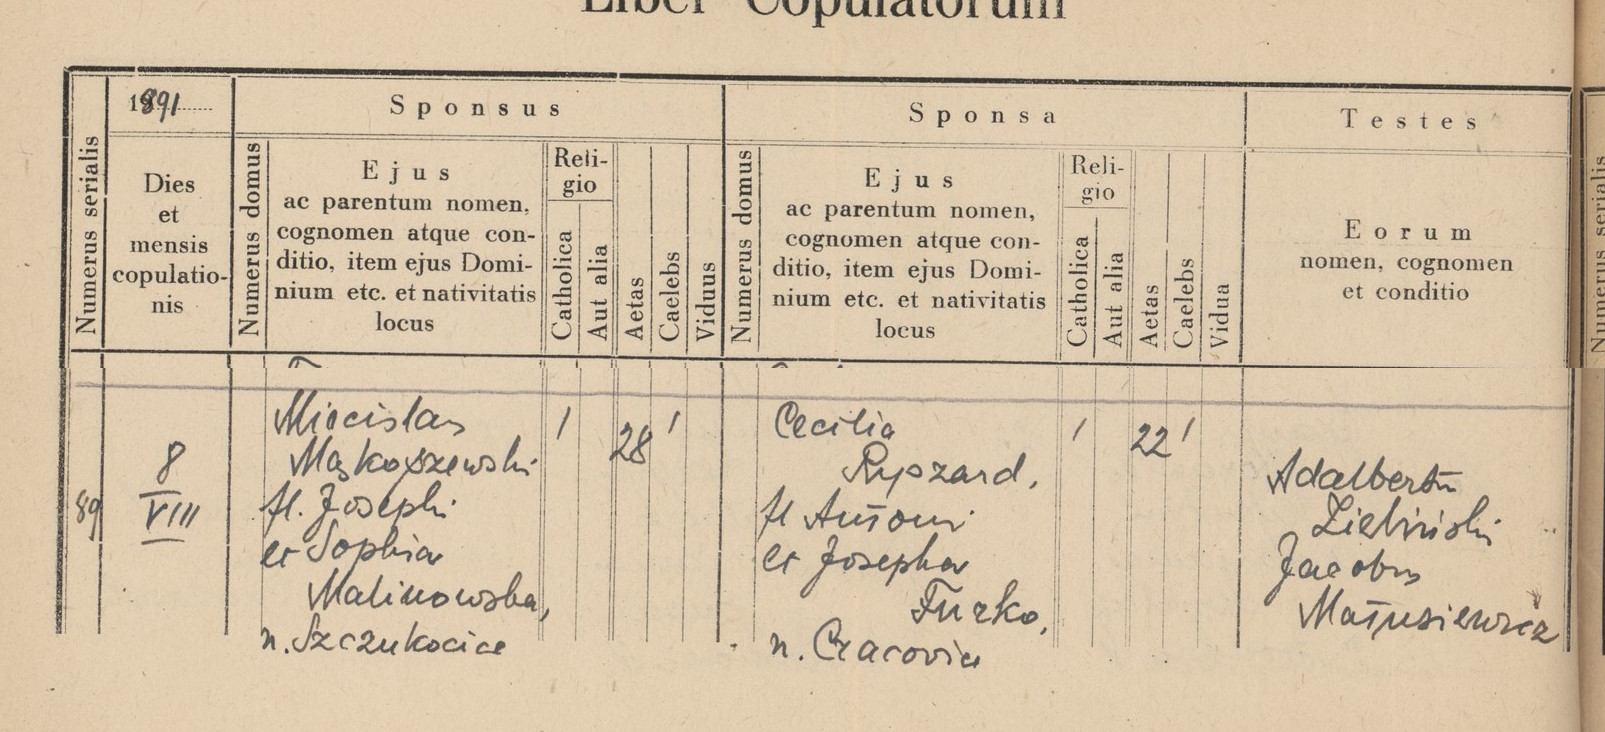 Liber Copulatorum
1891
Sponsus
Sponsa
Testes
Numerus serialis
Dies
et
mensis
copulatio-
nis
Numerus domus
Ejus
ac parentum nomen,
cognomen atque con-
ditio, item ejus Domi-
nium etc. et nativitatis
locus
Reli-
gio
Catholica
Aut alia
Aetas
Caelebs
Viduus
Numerus domus
Ejus
ac parentum nomen,
cognomen atque con-
ditio, item ejus Domi-
nium etc. et nativitatis
locus
Reli-
gio
Catholica
Aut alia
Aetas
Caelebs
Vidua
Eorum
nomen, cognomen
et conditio
Numerus serialis
89
8
VIII
Miecislas
Mąkoszewski
fl. Josephi
et Sophia
Malinowska,
n. Szczukocice
1
28
1
Cecilia
Ryszard,
fl Antoni
et Josepha
Turko,
n. Cracovia
1
22
1
Adalbertus
Zieliński
Jacobus
Matusiewicz